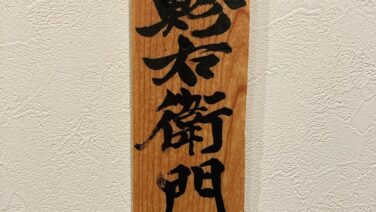 右衛門